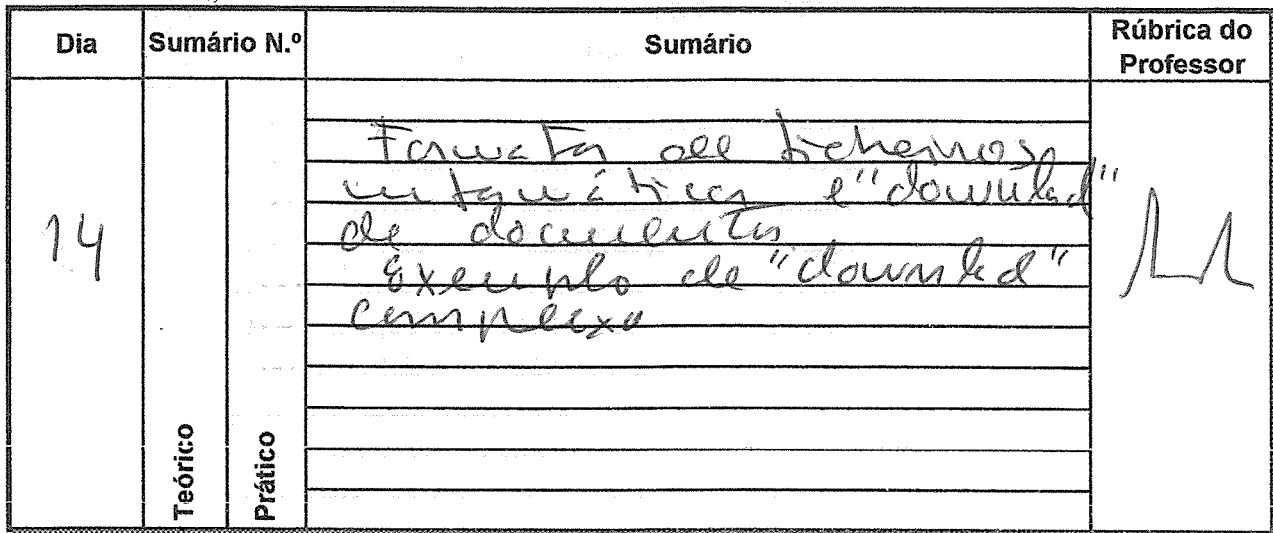 Dia Sumário N.º Sumário Rúbrica do Professor
14
Teórico
Prático
Formatos de ficheiros
informáticos e "download"
de documentos
Exemplo de "download"
complexo